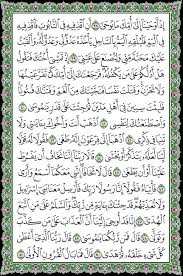 إِذْ أَوْحَيْنَآ إِلَىٰٓ أُمِّكَ مَا يُوحَىٰٓ ٣٨ أَنِ ٱقْذِفِيهِ فِي ٱلتَّابُوتِ فَٱقْذِفِيهِ
فِي ٱلْيَمِّ فَلْيُلْقِهِ ٱلْيَمُّ بِٱلسَّاحِلِ يَأْخُذْهُ عَدُوٌّ لِّي وَعَدُوٌّ لَّهُۥ وَأَلْقَيْتُ
عَلَيْكَ مَحَبَّةً مِّنِّي وَلِتُصْنَعَ عَلَىٰ عَيْنِيٓ ٣٩ إِذْ تَمْشِيٓ أُخْتُكَ
فَتَقُولُ هَلْ أَدُلُّكُمْ عَلَىٰ مَن يَكْفُلُهُۥ فَرَجَعْنَٰكَ إِلَىٰٓ أُمِّكَ كَيْ تَقَرَّ عَيْنُهَا
وَلَا تَحْزَنَ وَقَتَلْتَ نَفْسًا فَنَجَّيْنَٰكَ مِنَ ٱلْغَمِّ وَفَتَنَّٰكَ فُتُونًا
فَلَبِثْتَ سِنِينَ فِيٓ أَهْلِ مَدْيَنَ ثُمَّ جِئْتَ عَلَىٰ قَدَرٍ يَٰمُوسَىٰ ٤٠
وَٱصْطَنَعْتُكَ لِنَفْسِي ٤١ ٱذْهَبْ أَنتَ وَأَخُوكَ بِـَٔايَٰتِي وَلَا تَنِيَا
فِي ذِكْرِي ٤٢ ٱذْهَبَآ إِلَىٰ فِرْعَوْنَ إِنَّهُۥ طَغَىٰ ٤٣ فَقُولَا لَهُۥ قَوْلًا
لَّيِّنًا لَّعَلَّهُۥ يَتَذَكَّرُ أَوْ يَخْشَىٰ ٤٤ قَالَا رَبَّنَآ إِنَّنَا نَخَافُ أَن يَفْرُطَ
عَلَيْنَآ أَوْ أَن يَطْغَىٰ ٤٥ قَالَ لَا تَخَافَآ إِنَّنِي مَعَكُمَآ أَسْمَعُ وَأَرَىٰ
٤٦ فَأْتِيَاهُ فَقُولَآ إِنَّا رَسُولَا رَبِّكَ فَأَرْسِلْ مَعَنَا بَنِيٓ إِسْرَٰٓءِيلَ
وَلَا تُعَذِّبْهُمْ قَدْ جِئْنَٰكَ بِـَٔايَةٍ مِّن رَّبِّكَ وَٱلسَّلَٰمُ عَلَىٰ مَنِ ٱتَّبَعَ
ٱلْهُدَىٰٓ ٤٧ إِنَّا قَدْ أُوحِيَ إِلَيْنَآ أَنَّ ٱلْعَذَابَ عَلَىٰ مَن كَذَّبَ
وَتَوَلَّىٰ ٤٨ قَالَ فَمَن رَّبُّكُمَا يَٰمُوسَىٰ ٤٩ قَالَ رَبُّنَا ٱلَّذِيٓ أَعْطَىٰ
كُلَّ شَيْءٍ خَلْقَهُۥ ثُمَّ هَدَىٰ ٥٠ قَالَ فَمَا بَالُ ٱلْقُرُونِ ٱلْأُولَىٰ ٥١